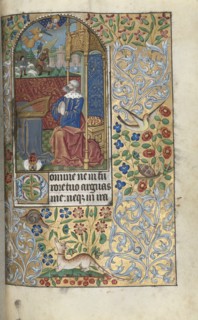 Domine ne in fu
rore tuo arguas
me: neqꝫ in ira